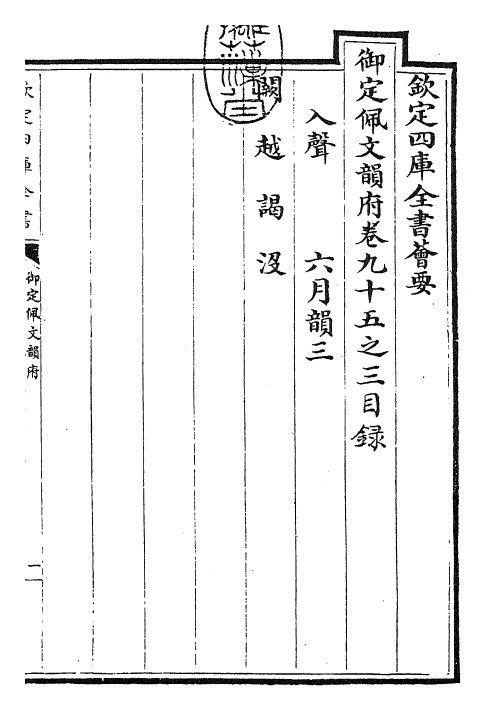 欽定四庫全書薈要
御定佩文韻府卷九十五之三目録
入聲　六月韻三
闕　越　謁　沒
欽定四庫全書
御定佩文韻府
一